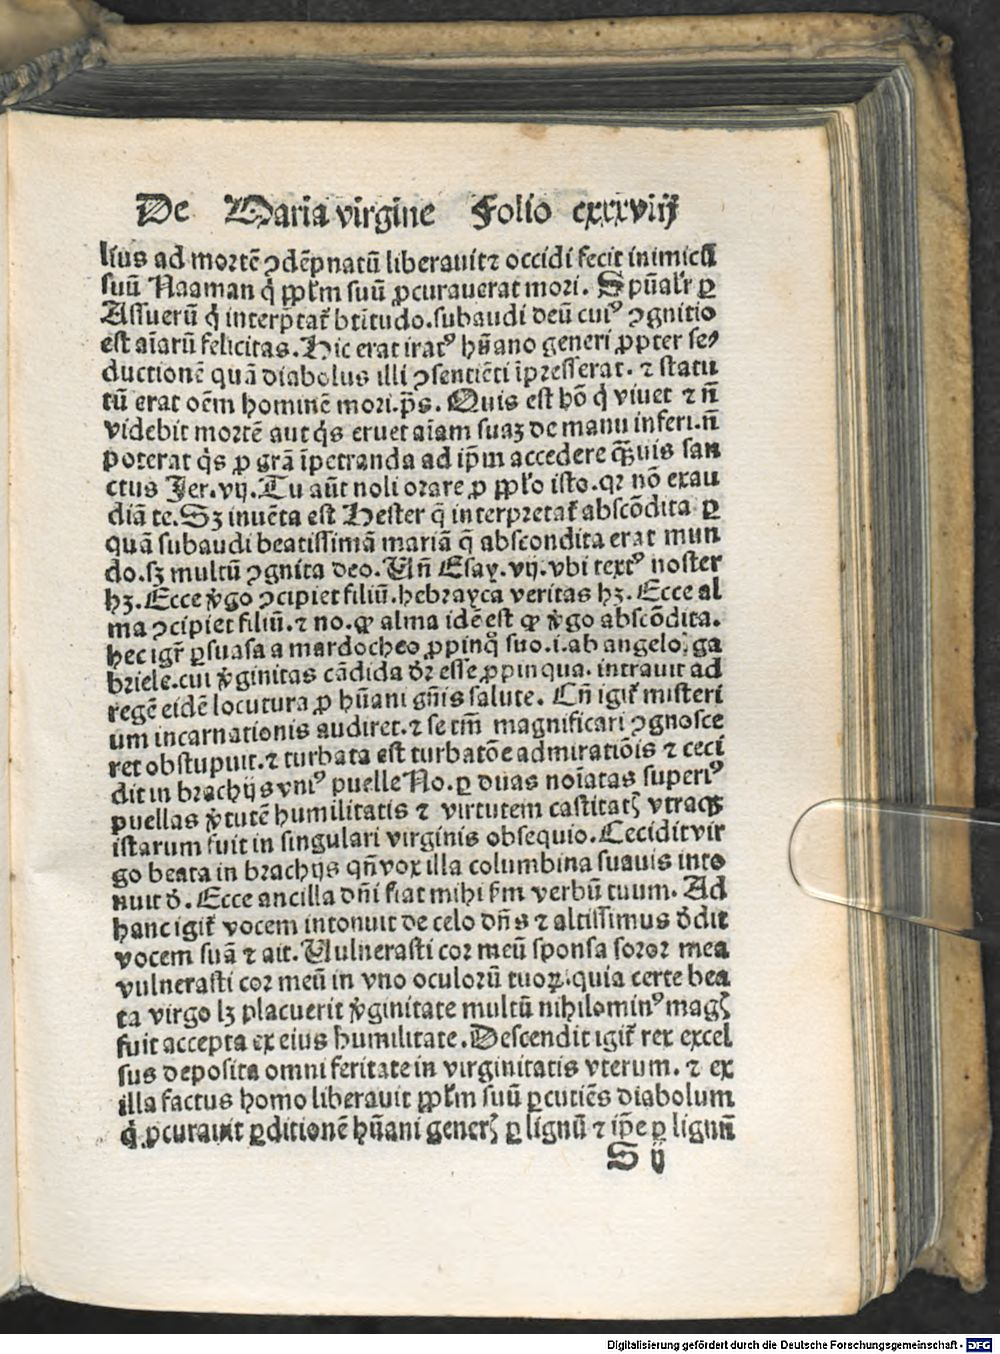 De Maria virgine Folio cxxxviij
lius ad mortē ꝯdēpnatū liberauit ⁊ occidi fecit inimicū
suū Naaman q̇ ppl̄m suū ꝓcurauerat mori. Spūal'r ꝑ
Assuerū q̇ interp̄tat̄ btītudo. subaudi deū cuiꝰ ꝯgnitio
est aīarū felicitas. Hic erat iratꝰ hūano generi ꝓpter se⸗
ductionē quā diabolus illi ꝯsentiēti īpresserat. ⁊ statu
tū erat oēm hominē mori. p̄s. Quis est hō q̇ viuet ⁊ nō
videbit mortē aut q̇s eruet aīam suaꝫ de manu inferi. nō
poterat q̇s ꝓ grā īpetranda ad ip̄m accedere q̄ꝫuis san
ctus Jer. vij. Tu aūt noli orare ꝓ pplo isto. qꝛ nō exau
diā te. Sꝫ inuēta est Hester q̄ interpretat̄ abscōdita ꝑ
quā subaudi beatissimā mariā q̄ abscondita erat mun
do. sꝫ multū ꝯgnita deo. Vn̄ Esay. vij. vbi textꝰ noster
hꝫ. Ecce v̇go ꝯcipiet filiū. hebrayca veritas hꝫ. Ecce al
ma ꝯcipiet filiū. ⁊ no. ꝙ alma idē est ꝙ v̇go abscōdita.
hec igr̄ ꝑsuasa a mardocheo ꝓpinq̇ suo. i. ab angelo ga
briele. cui v̇ginitas cādida dr̄ esse ꝓpinqua. intrauit ad
regē eidē locutura ꝓ hūani gn̄is salute. Cū igit̄ misteri
um incarnationis audiret. ⁊ se tm̄ magnificari ꝯgnosce
ret obstupuit. ⁊ turbata est turbatōe admiratiōis ⁊ ceci
dit in brachijs vniꝰ puelle No. ꝑ duas noīatas superiꝰ
puellas v̇tutē humilitatis ⁊ virtutem castitatꝭ vtraqꝫ
istarum fuit in singulari virginis obsequio. Cecidit vir
go beata in brachijs qn̄ vox illa columbina suauis into
nuit d. Ecce ancilla dn̄i fiat mihi sm̄ verbū tuum. Ad
hanc igit̄ vocem intonuit de celo dn̄s ⁊ altissimus dedit
vocem suā ⁊ ait. Vulnerasti cor meū sponsa soror mea
vulnerasti cor meū in vno oculorū tuoꝝ. quia certe bea
ta virgo lꝫ placuerit v̇ginitate multū nihilominꝰ magꝭ
fuit accepta ex eius humilitate. Descendit igit̄ rex excel
sus deposita omni feritate in virginitatis vterum. ⁊ ex
illa factus homo liberauit ppl̄m suū ꝑcutiēs diabolum
q̇ ꝓcurauit ꝑditionē hūani generꝭ ꝑ lignū ⁊ ip̄e ꝑ lignū
S ij
Digitalisierung gefördert durch die Deutsche Forschungsgemeinschaft - DFG